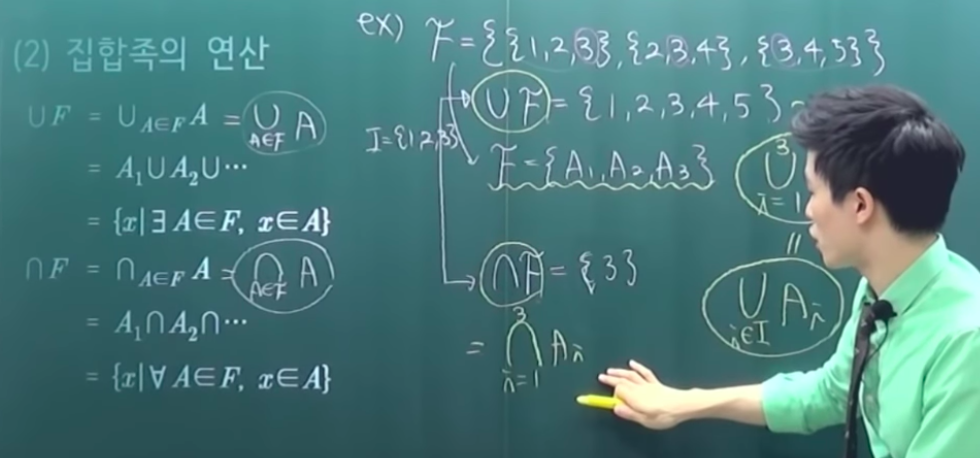 (2) 집합족의 연산
∪F = ∪_{A∈F} A = ∪_{A∈F} A
= A₁∪A₂∪⋯
= {x|∃A∈F, x∈A}
∩F = ∩_{A∈F} A = ∩_{A∈F} A
= A₁∩A₂∩⋯
= {x|∀A∈F, x∈A}
ex) F = {{1,2,3}, {2,3,4}, {3,4,5}}
∪F = {1,2,3,4,5}
I={1,2,3}
F = {A₁, A₂, A₃}
∪_{i=1}^{3}
=
∪_{i∈I} A_i
∩F = {3}
= ∩_{i=1}^{3} A_i